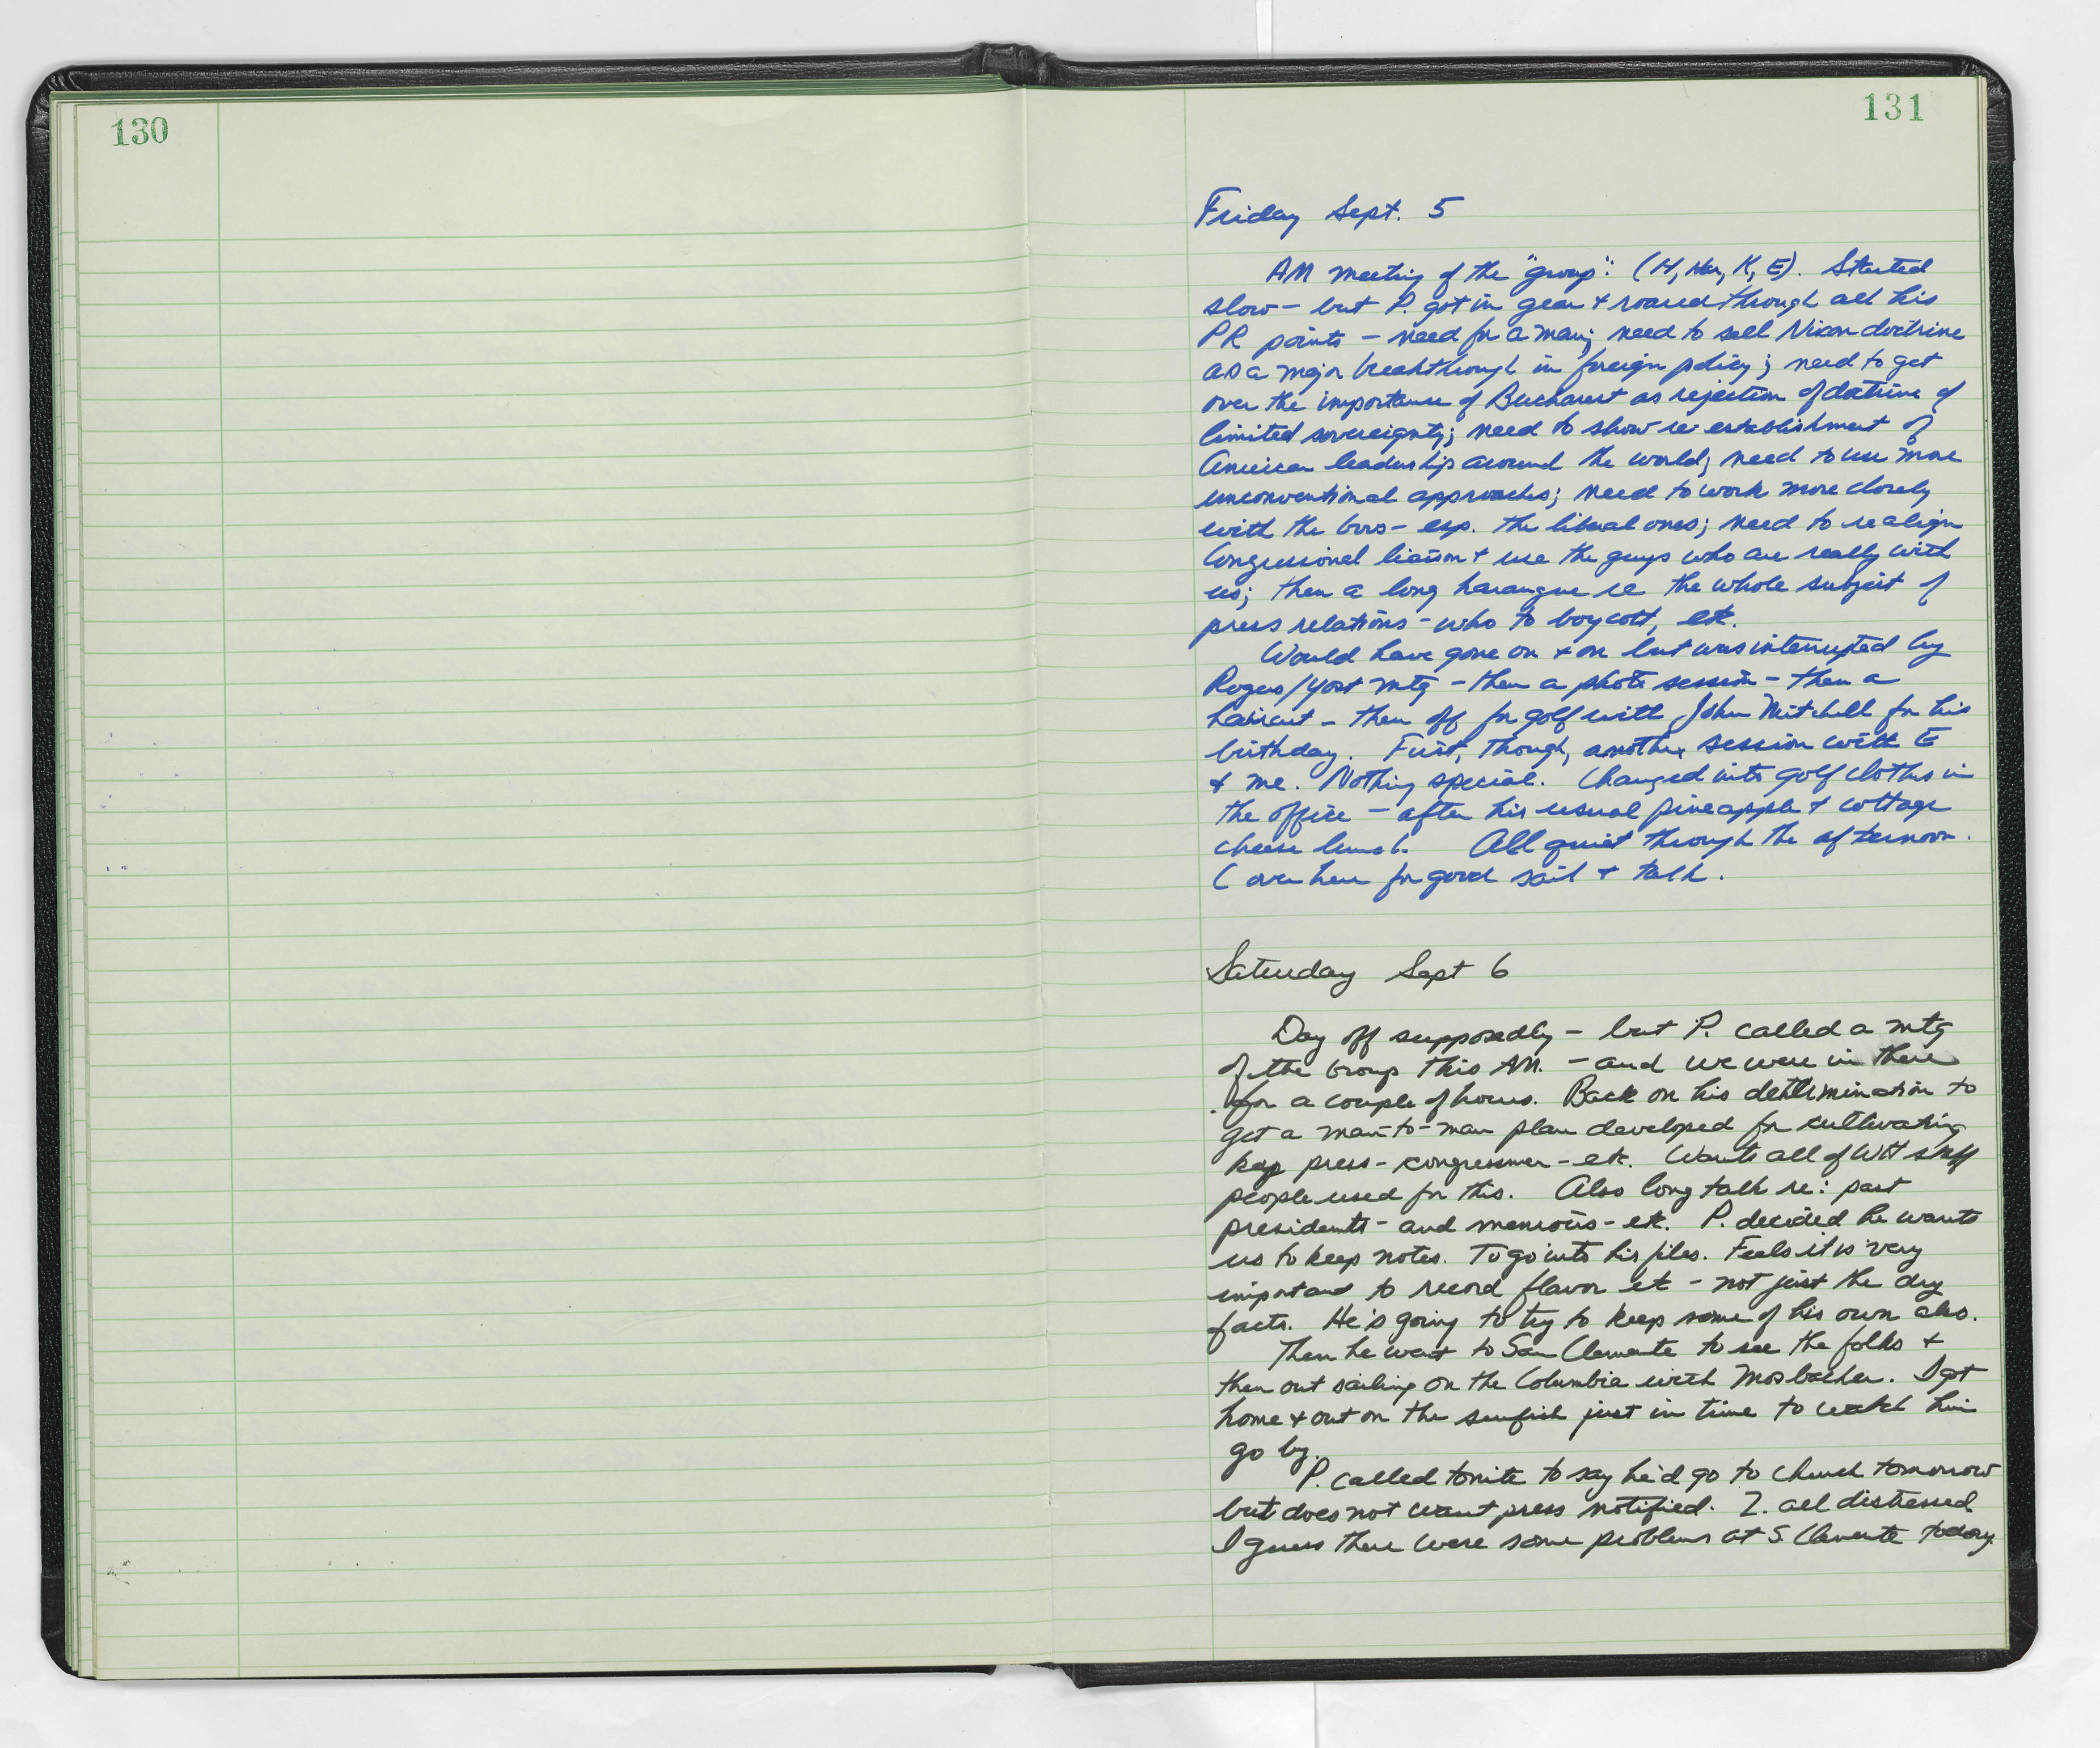 130
131
Friday Sept. 5
AM meeting of the "group": (H, Har, K, E). Started
slow - but P. got in gear + roared through all his
PR points - need for a man; need to sell Nixon doctrine
as a major breakthrough in foreign policy; need to get
over the importance of Bucharest as rejection of doctrine of
limited sovereignty; need to show re-establishment of
American leadership around the world; need to use more
unconventional approaches; need to work more closely
with the Govs - esp. the liberal ones; need to realign
Congressional liaison + use the guys who are really with
us; then a long harangue re the whole subject of
press relations - who to boycott, etc.
Would have gone on + on but was interrupted by
Rogers/Yost mtg - then a photo session - then a
haircut - then off for golf with John Mitchell for his
birthday. First, though, another session with E
+ me. Nothing special. Changed into golf clothes in
the office - after his usual pineapple + cottage
cheese lunch. All quiet through the afternoon.
C over here for good sail + talk.
Saturday Sept 6
Day off supposedly - but P. called a mtg
of the Group this AM. - and we were in there
for a couple of hours. Back on his determination to
get a man-to-man plan developed for cultivating
key press - congressmen - etc. Wants all of WH staff
people used for this. Also long talk re: past
presidents - and memoirs - etc. P. decided he wants
us to keep notes. To go into his files. Feels it is very
important to record flavor etc - not just the dry
facts. He's going to try to keep some of his own also.
Then he went to San Clemente to see the folks +
then out sailing on the Columbia with Mosbacher. I got
home + out on the sunfish just in time to watch him
go by.
P. called tonite to say he'd go to church tomorrow
but does not want press notified. Z. all distressed
I guess there were some problems at S. Clemente today.